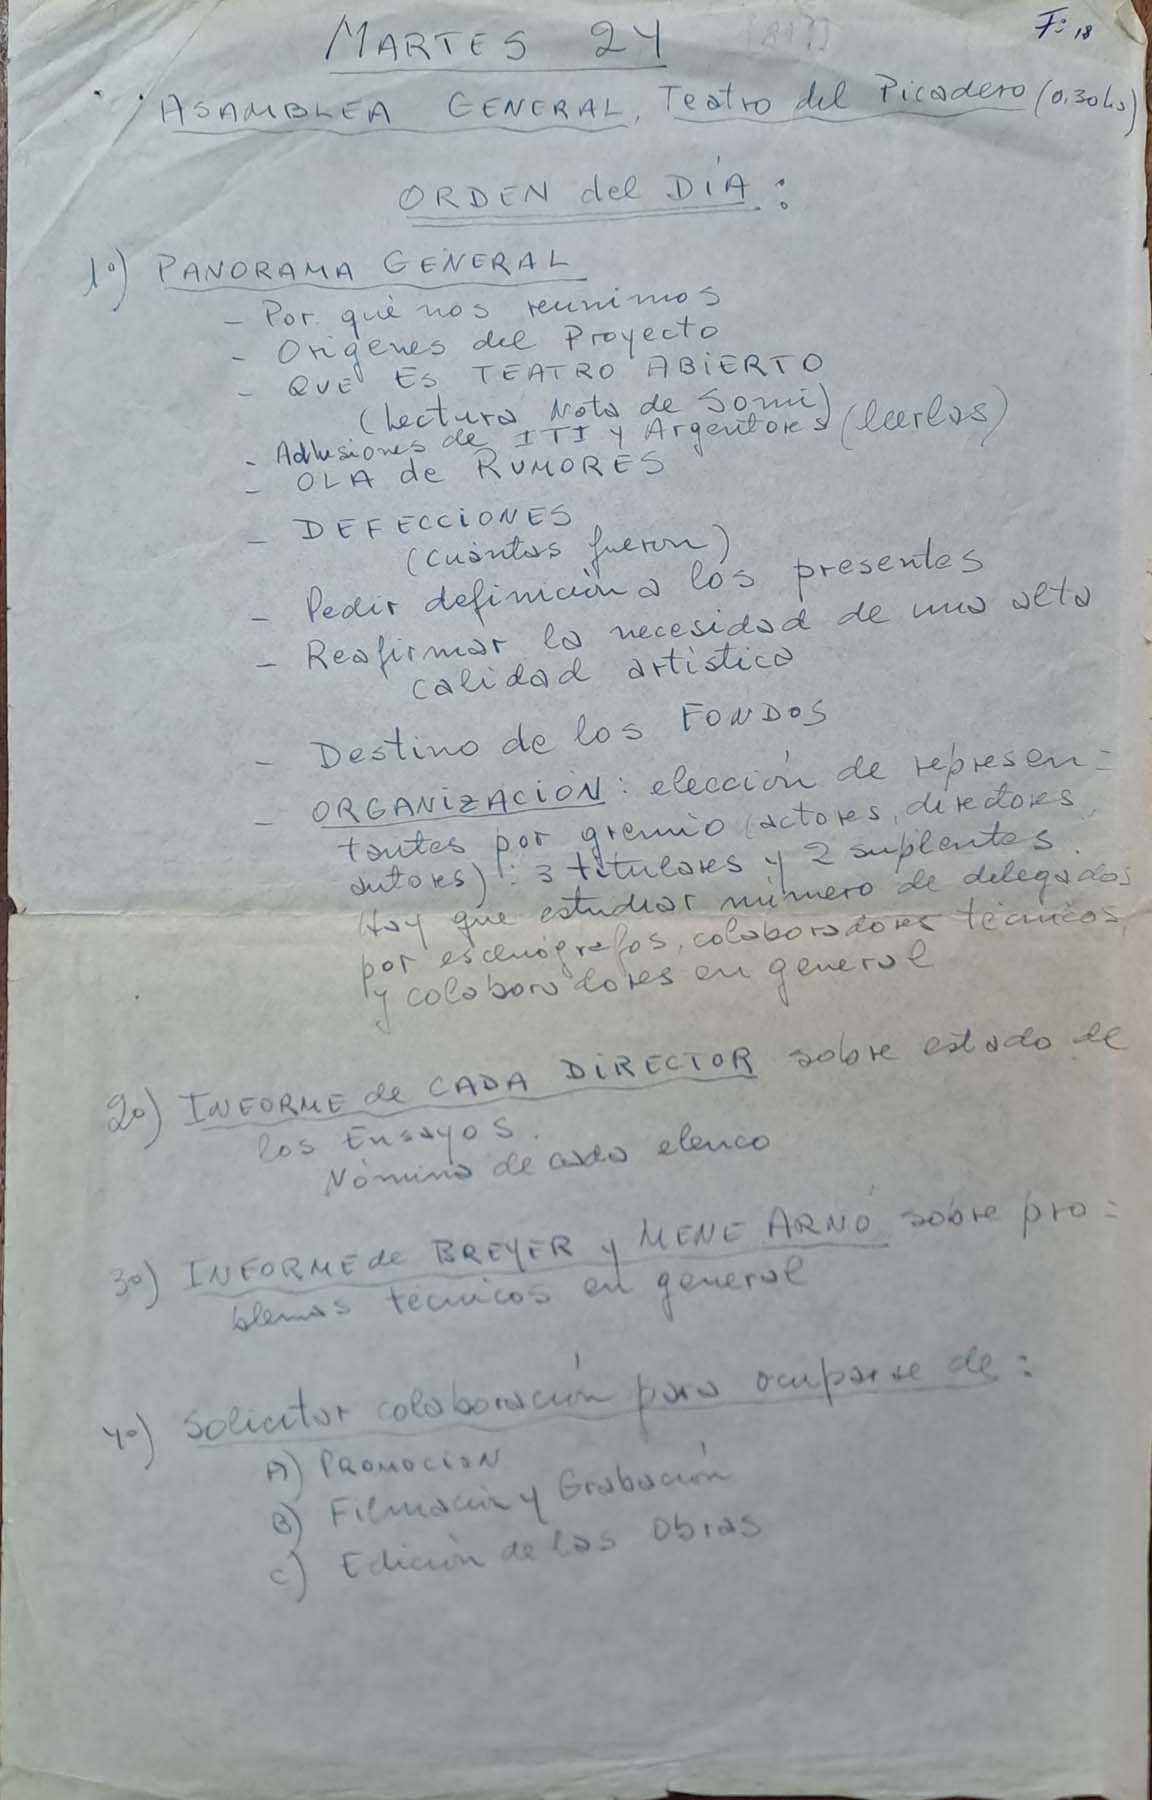 F: 18
MARTES 24
ASAMBLEA GENERAL, Teatro del Picadero (0,30 hs)
ORDEN del DÍA:
1º) PANORAMA GENERAL
- Por qué nos reunimos
- Orígenes del Proyecto
- QUE ES TEATRO ABIERTO
(Lectura Nota de Somi)
- Adhesiones de ITI y Argentores (leerlas)
- OLA de RUMORES
- DEFECCIONES
(cuántas fueron)
- Pedir definición a los presentes
- Reafirmar la necesidad de una alta
calidad artística
- Destino de los FONDOS
- ORGANIZACIÓN: elección de represen=
tantes por gremio (actores, directores,
autores): 3 titulares y 2 suplentes.
Hay que estudiar número de delegados
por escenógrafos, colaboradores técnicos,
y colaboradores en general
2º) INFORME de CADA DIRECTOR sobre estado de
los Ensayos.
Nómina de cada elenco
3º) INFORME de BREYER y MENE ARNÓ sobre pro=
blemas técnicos en general
4º) Solicitar colaboración para ocuparse de:
A) PROMOCION
B) Filmación y Grabación
C) Edición de las Obras